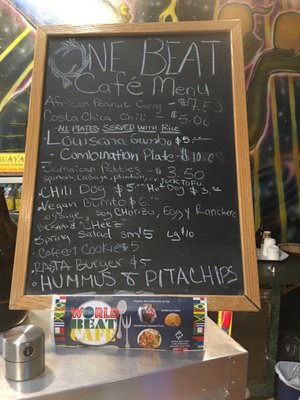 ONE BEAT
Café Menu
African Peanut Curry - $7.50
Costa Chica Chili - $6.00
ALL PLATED SERVED WITH RICE
Louisana Gumbo $5
- Combination Plate - $10.00
Jamaican Patties - $3.50
spinach, Callaloo, plantain, Jerk Tofu
CHILI Dog $5 Hot Dog $
Vegan Burrito $6
Soysage, Soy CHORizo, Eggs Ranchero
Spring Salad sm $5 Lg $10
Cookie $5
RASTA Burger $5
HUMMUS & PITACHIPS
GUAYA
WORLD
BEAT
CAFE